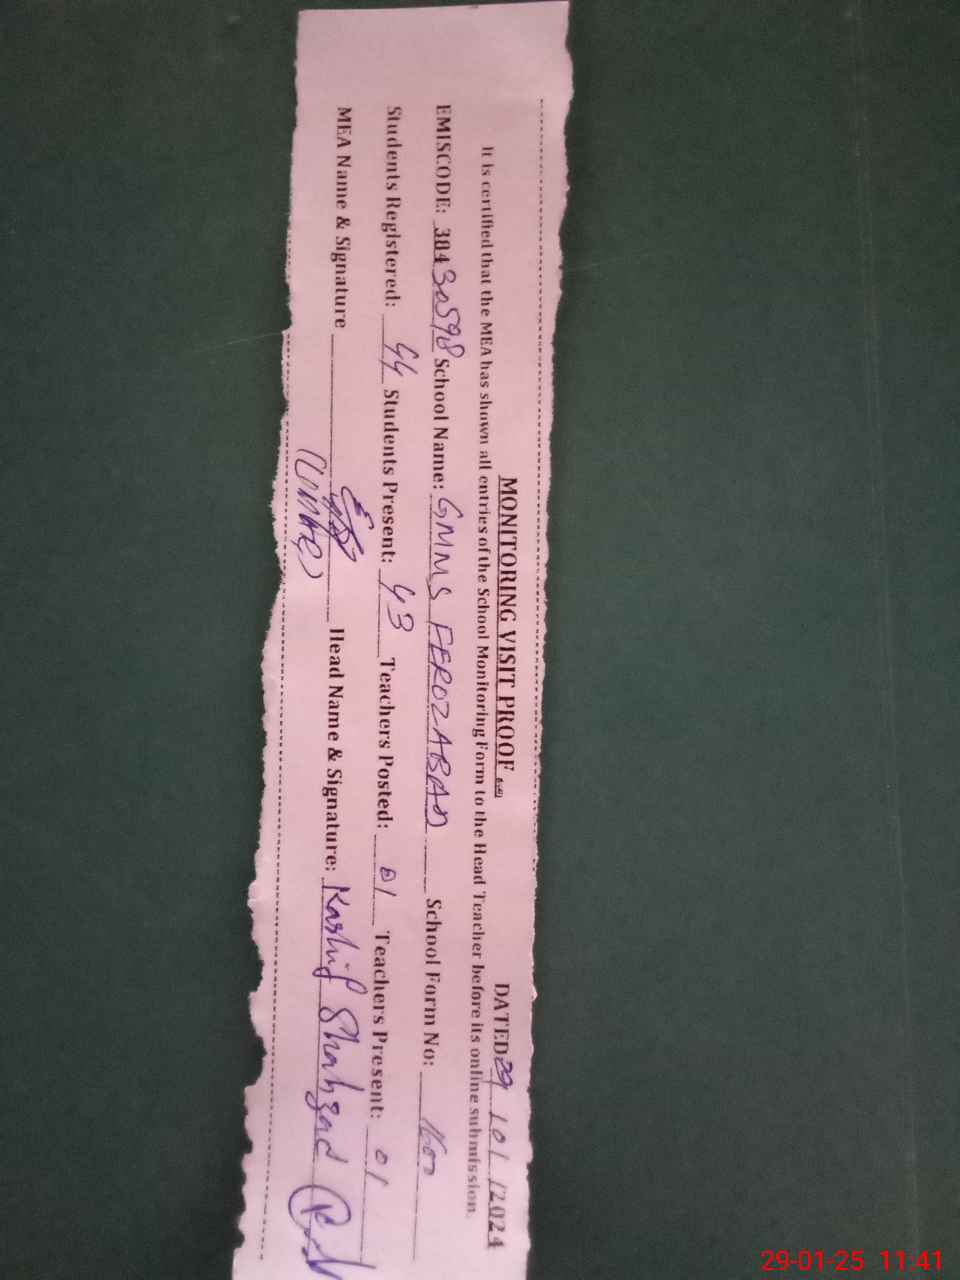 MONITORING VISIT PROOF DATED 29/01/2024
It is certified that the MEA has shown all entries of the School Monitoring Form to the Head Teacher before its online submission.
EMISCODE: 38430598 School Name: GMMS FEROZABAD School Form No: 1600
Students Registered: 44 Students Present: 43 Teachers Posted: 01 Teachers Present: 01
MEA Name & Signature Head Name & Signature: Kashif Shahzad
29-01-25 11:41